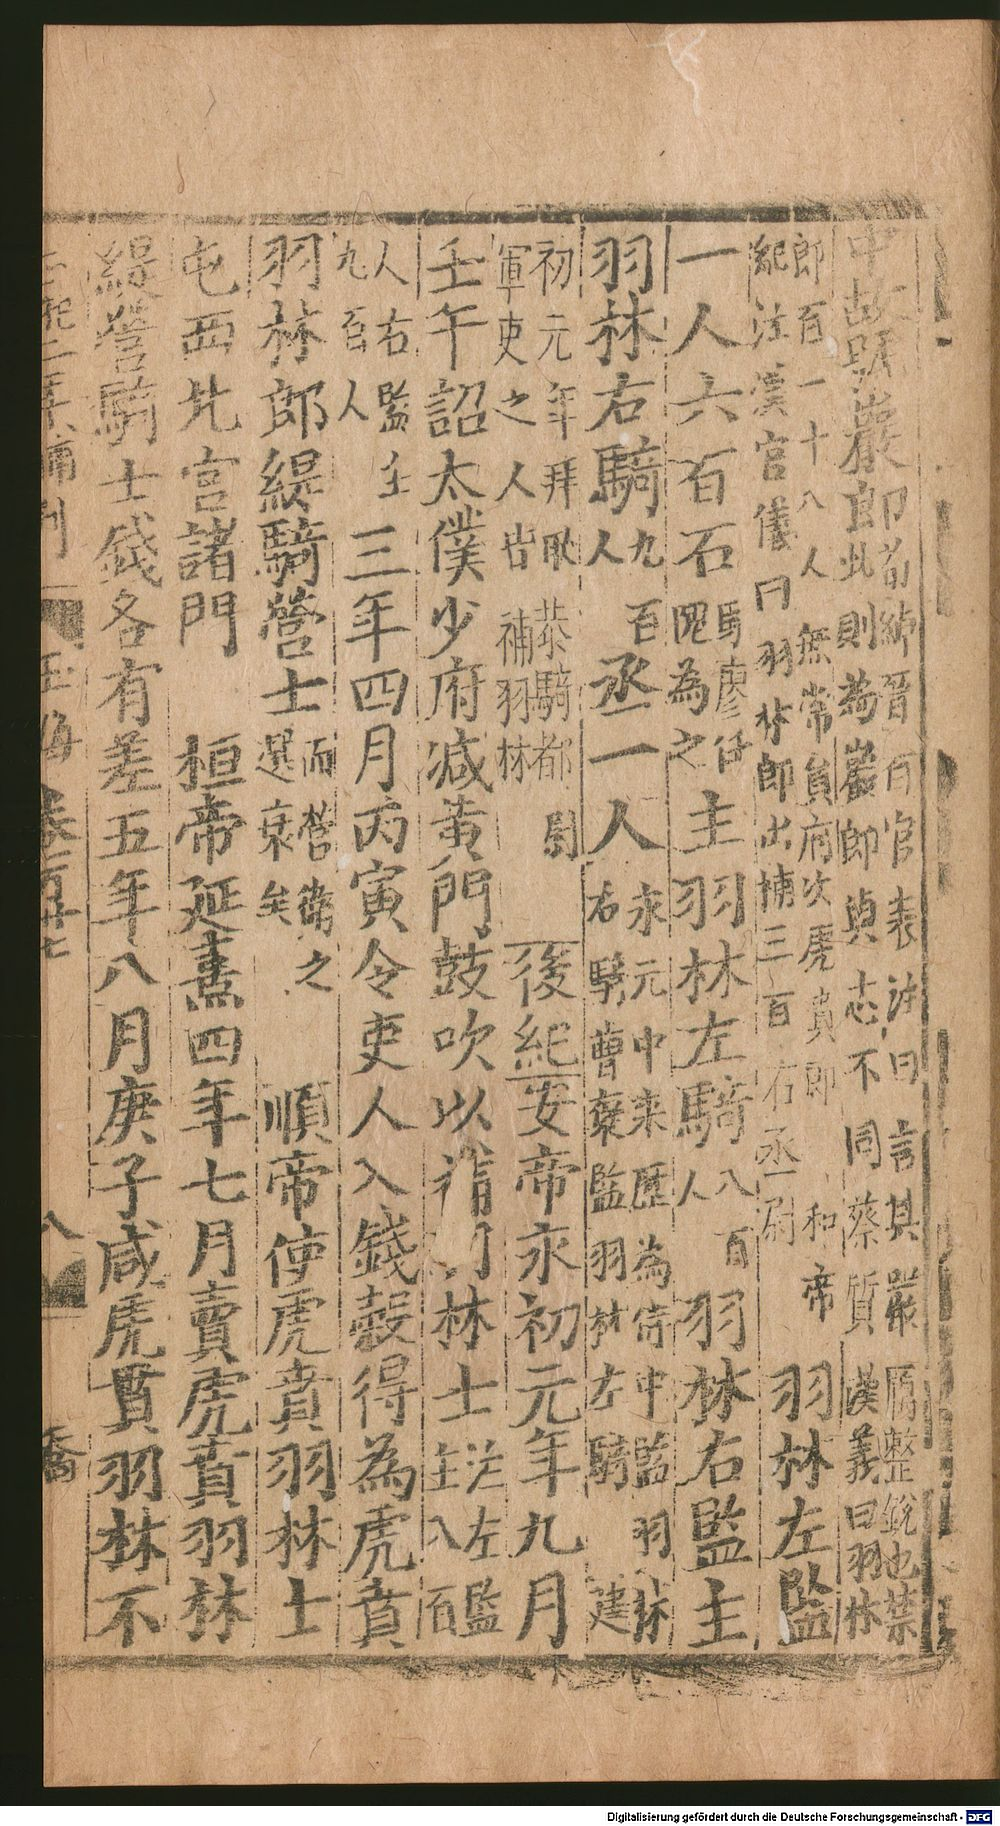 中故號巖郎荀綽晉百官表注曰言其嚴厲整銳也禁
此則為巖郎與志不同蔡質漢義曰羽林
郎百一十八人無常員府次虎賁郎 和帝
紀注漢官儀曰羽林郎出補三百石丞尉 羽林左監
一人六百石馬廖任隗為之主羽林左騎八百人羽林右監主
羽林右騎九百人丞一人永元中来歷為侍中監羽林右騎曹褒監羽林左騎 建
初元年拜耿恭騎都尉軍吏之人皆補羽林 後紀安帝永初元年九月
壬午詔太僕少府减黄門鼓吹以補羽林士注左監主八百
人右監主九百人 三年四月丙寅令吏人入錢穀得為虎賁
羽林郎緹騎營士而營衛之選衰矣 順帝使虎賁羽林士
屯西北宫諸門 桓帝延熹四年七月賣虎賁羽林
緹營騎士錢各有差五年八月庚子咸虎賁羽林不
玉海 卷百卅七 八
Digitalisierung gefördert durch die Deutsche Forschungsgemeinschaft - DFG